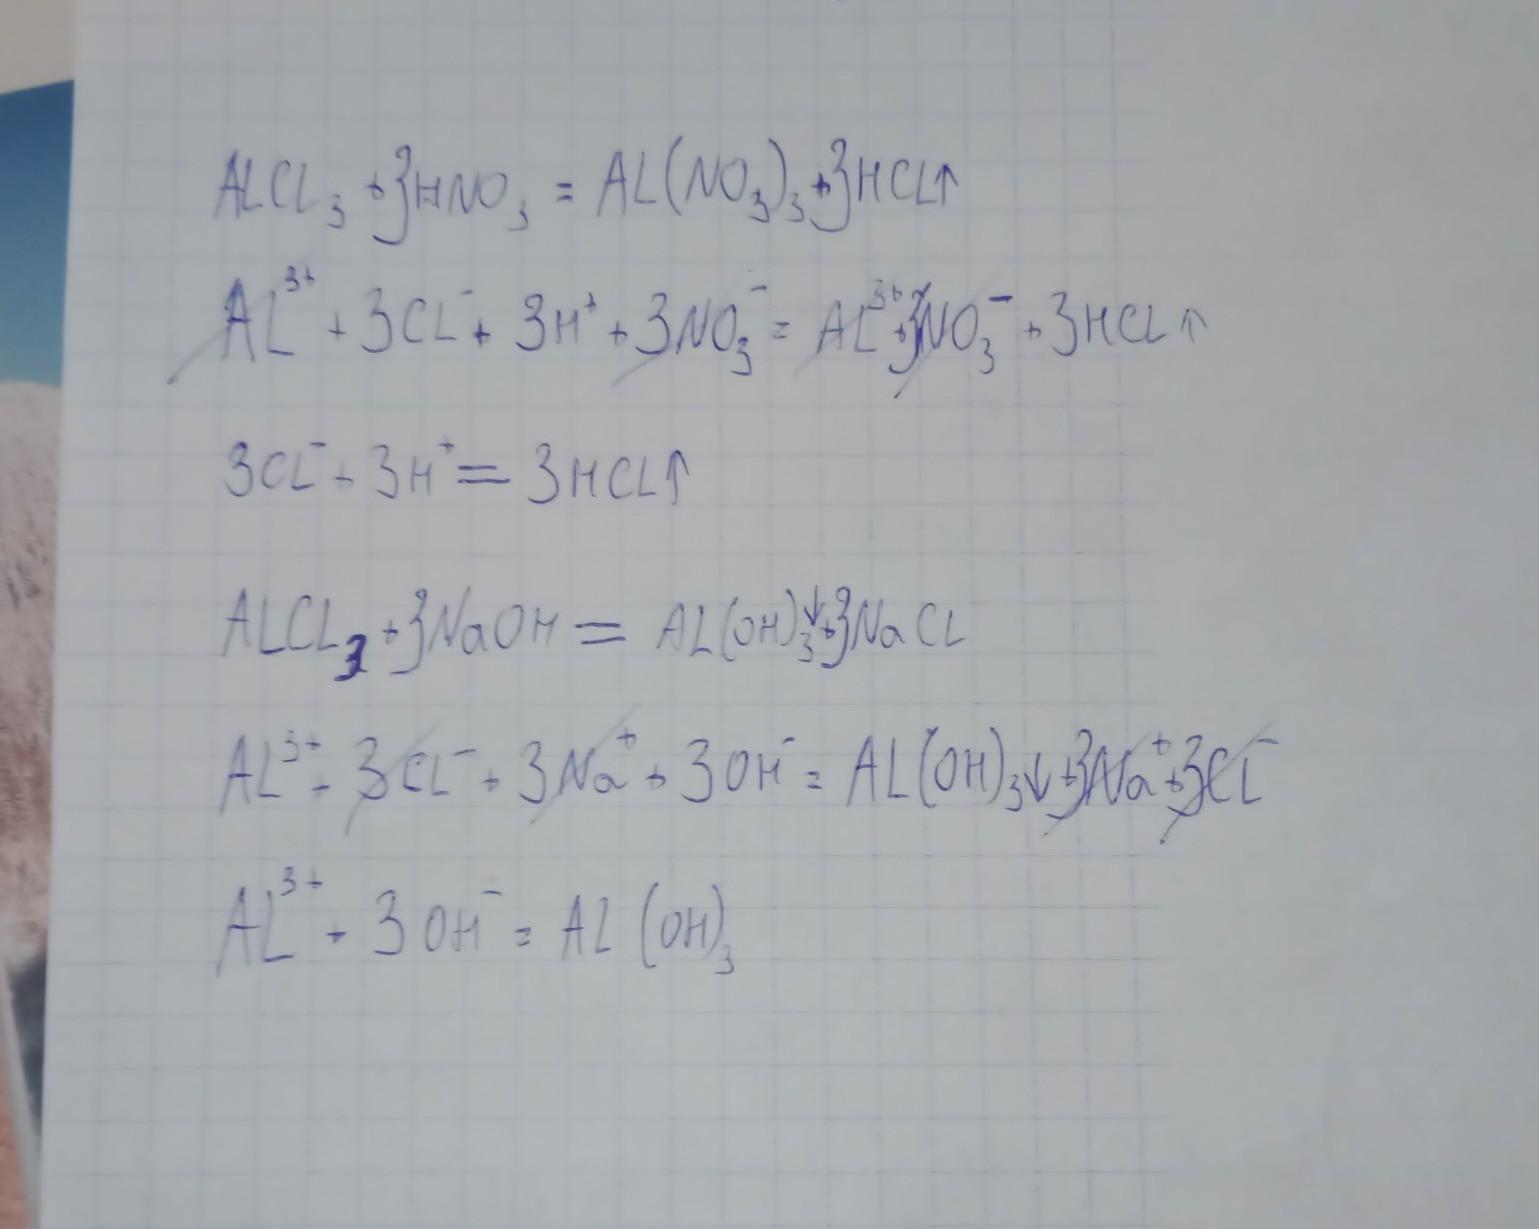 ALCL₃ + 3HNO₃ = AL(NO₃)₃ + 3HCL↑
AL³⁺ + 3CL⁻ + 3H⁺ + 3NO₃⁻ = AL³⁺ + 3NO₃⁻ + 3HCL↑
3CL⁻ + 3H⁺ = 3HCL↑
ALCL₃ + 3NaOH = AL(OH)₃↓ + 3NaCL
AL³⁺ + 3CL⁻ + 3Na⁺ + 3OH⁻ = AL(OH)₃↓ + 3Na⁺ + 3CL⁻
AL³⁺ + 3OH⁻ = AL(OH)₃